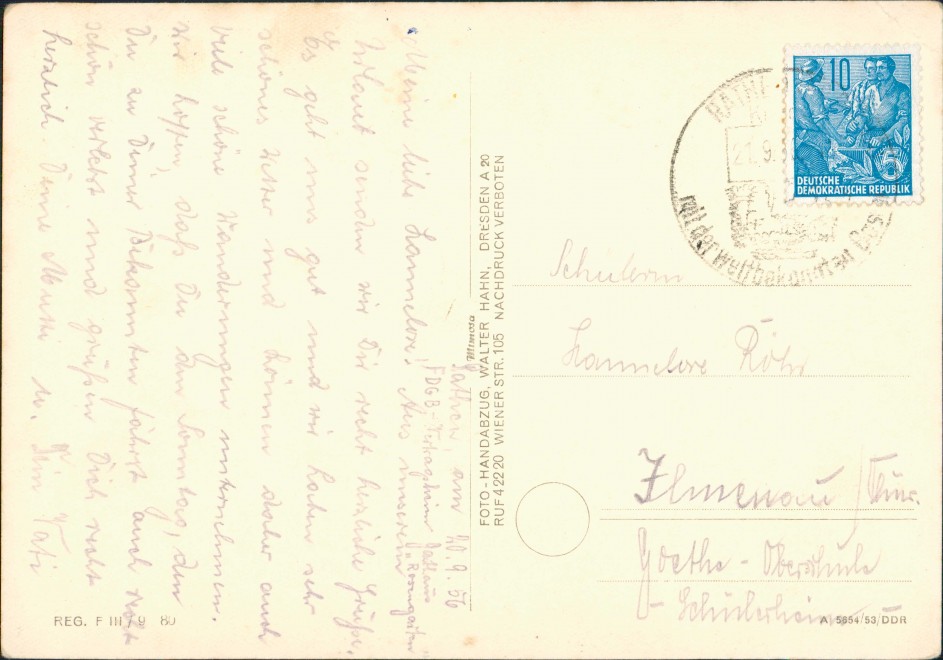 Rathen, am 10.9.56
FDGB-Vertragsheim
"Rosengarten"
Meine liebe Hannelore! Aus unserem
Urlaub senden wir Dir recht herzliche Grüße.
Es geht uns gut und wir haben sehr
schönes Wetter und können daher auch
viele schöne Wanderungen unternehmen.
Wir hoffen, daß Du den Sonntag, den
Du zu Deiner Bekannten fährst auch recht
schön verlebst und grüßen Dich recht
herzlich Deine Mutti u. Dein Vati
Mimosa
FOTO-HANDABZUG, WALTER HAHN, DRESDEN A 20
RUF 42220 WIENER STR. 105 NACHDRUCK VERBOTEN
REG. F III 9 80
RATHE
21.9.
mit der weltbekannten Bas
10
5
DEUTSCHE
DEMOKRATISCHE REPUBLIK
Schülerin
Hannelore Röhr
Ilmenau / Thür.
Goethe-Oberschule
- Schülerheim
A 5654/53/DDR